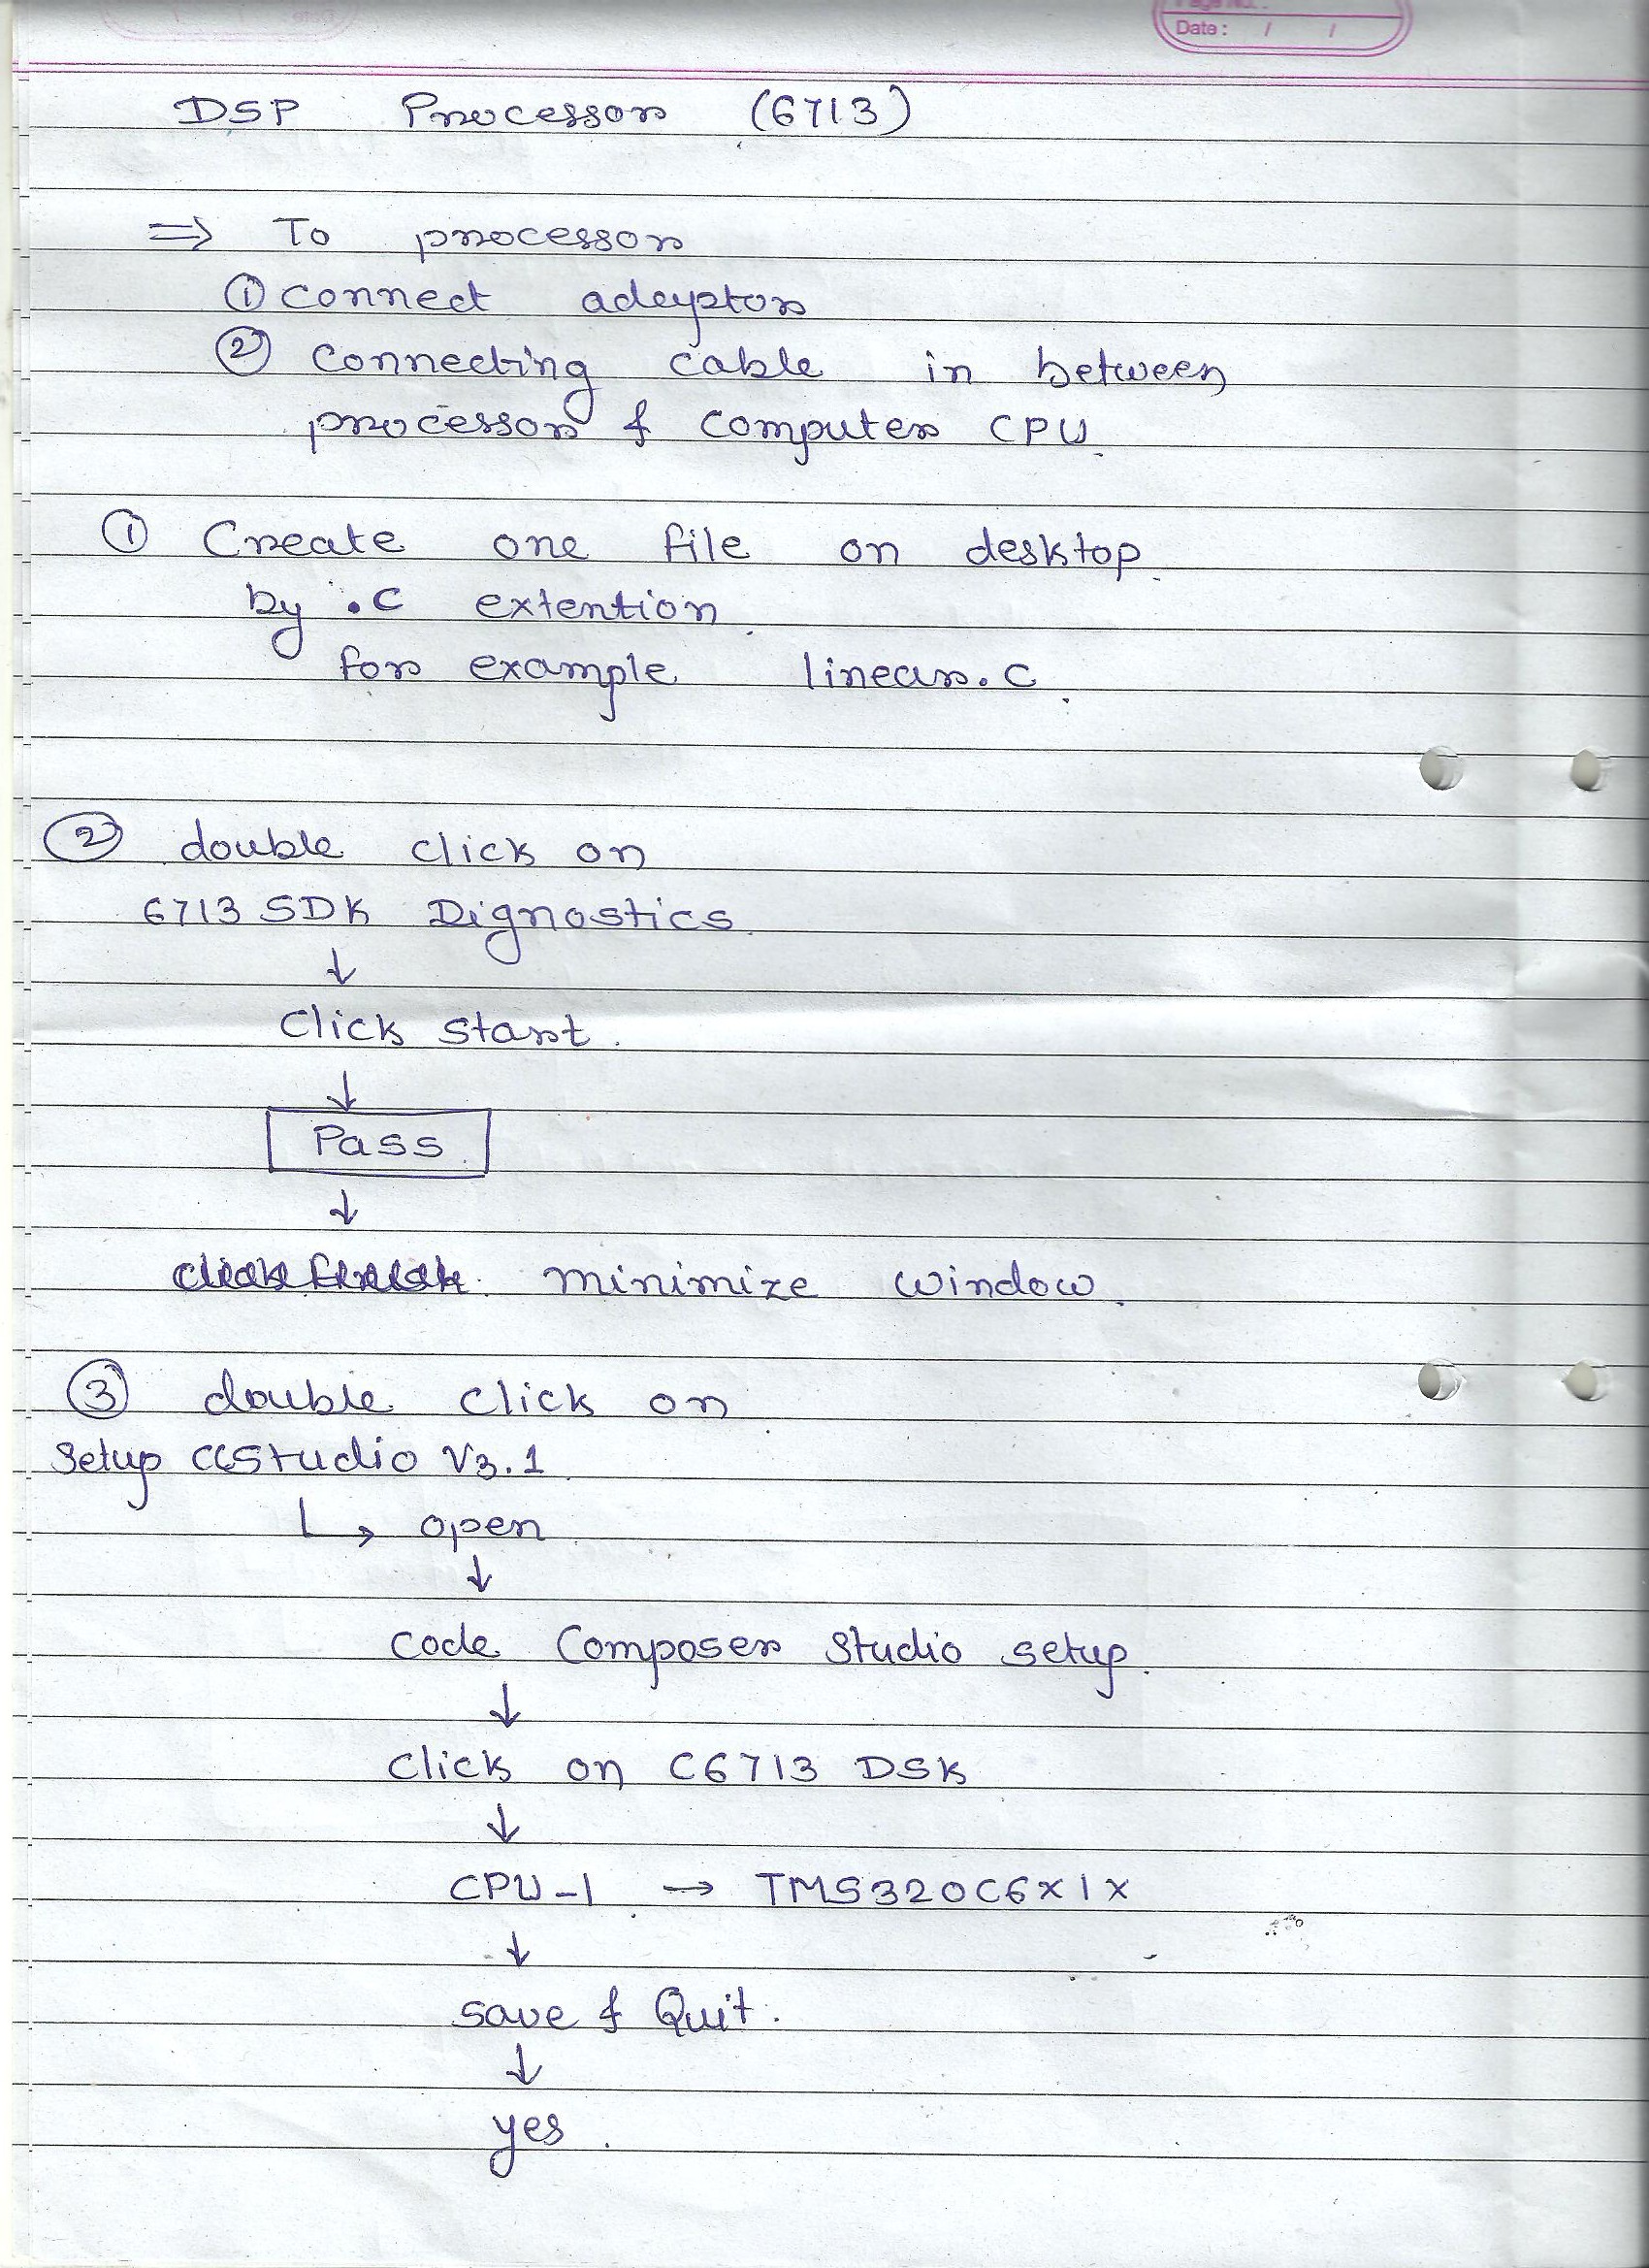 Page No. :
Date : / /
DSP Processor (6713)
⇒ To processor
① connect adeyptor
② connecting cable in between
processor & computer CPU.
① Create one file on desktop
by .C extention
for example linear.C
② double click on
6713 SDK Dignostics
↓
Click start.
↓
Pass
↓
click finish. minimize window.
③ double click on
Setup CCStudio V3.1
↳ open
↓
code Composer Studio setup.
↓
Click on C6713 DSK
↓
CPU-1 → TMS320C6X1X
↓
save & Quit.
↓
yes.